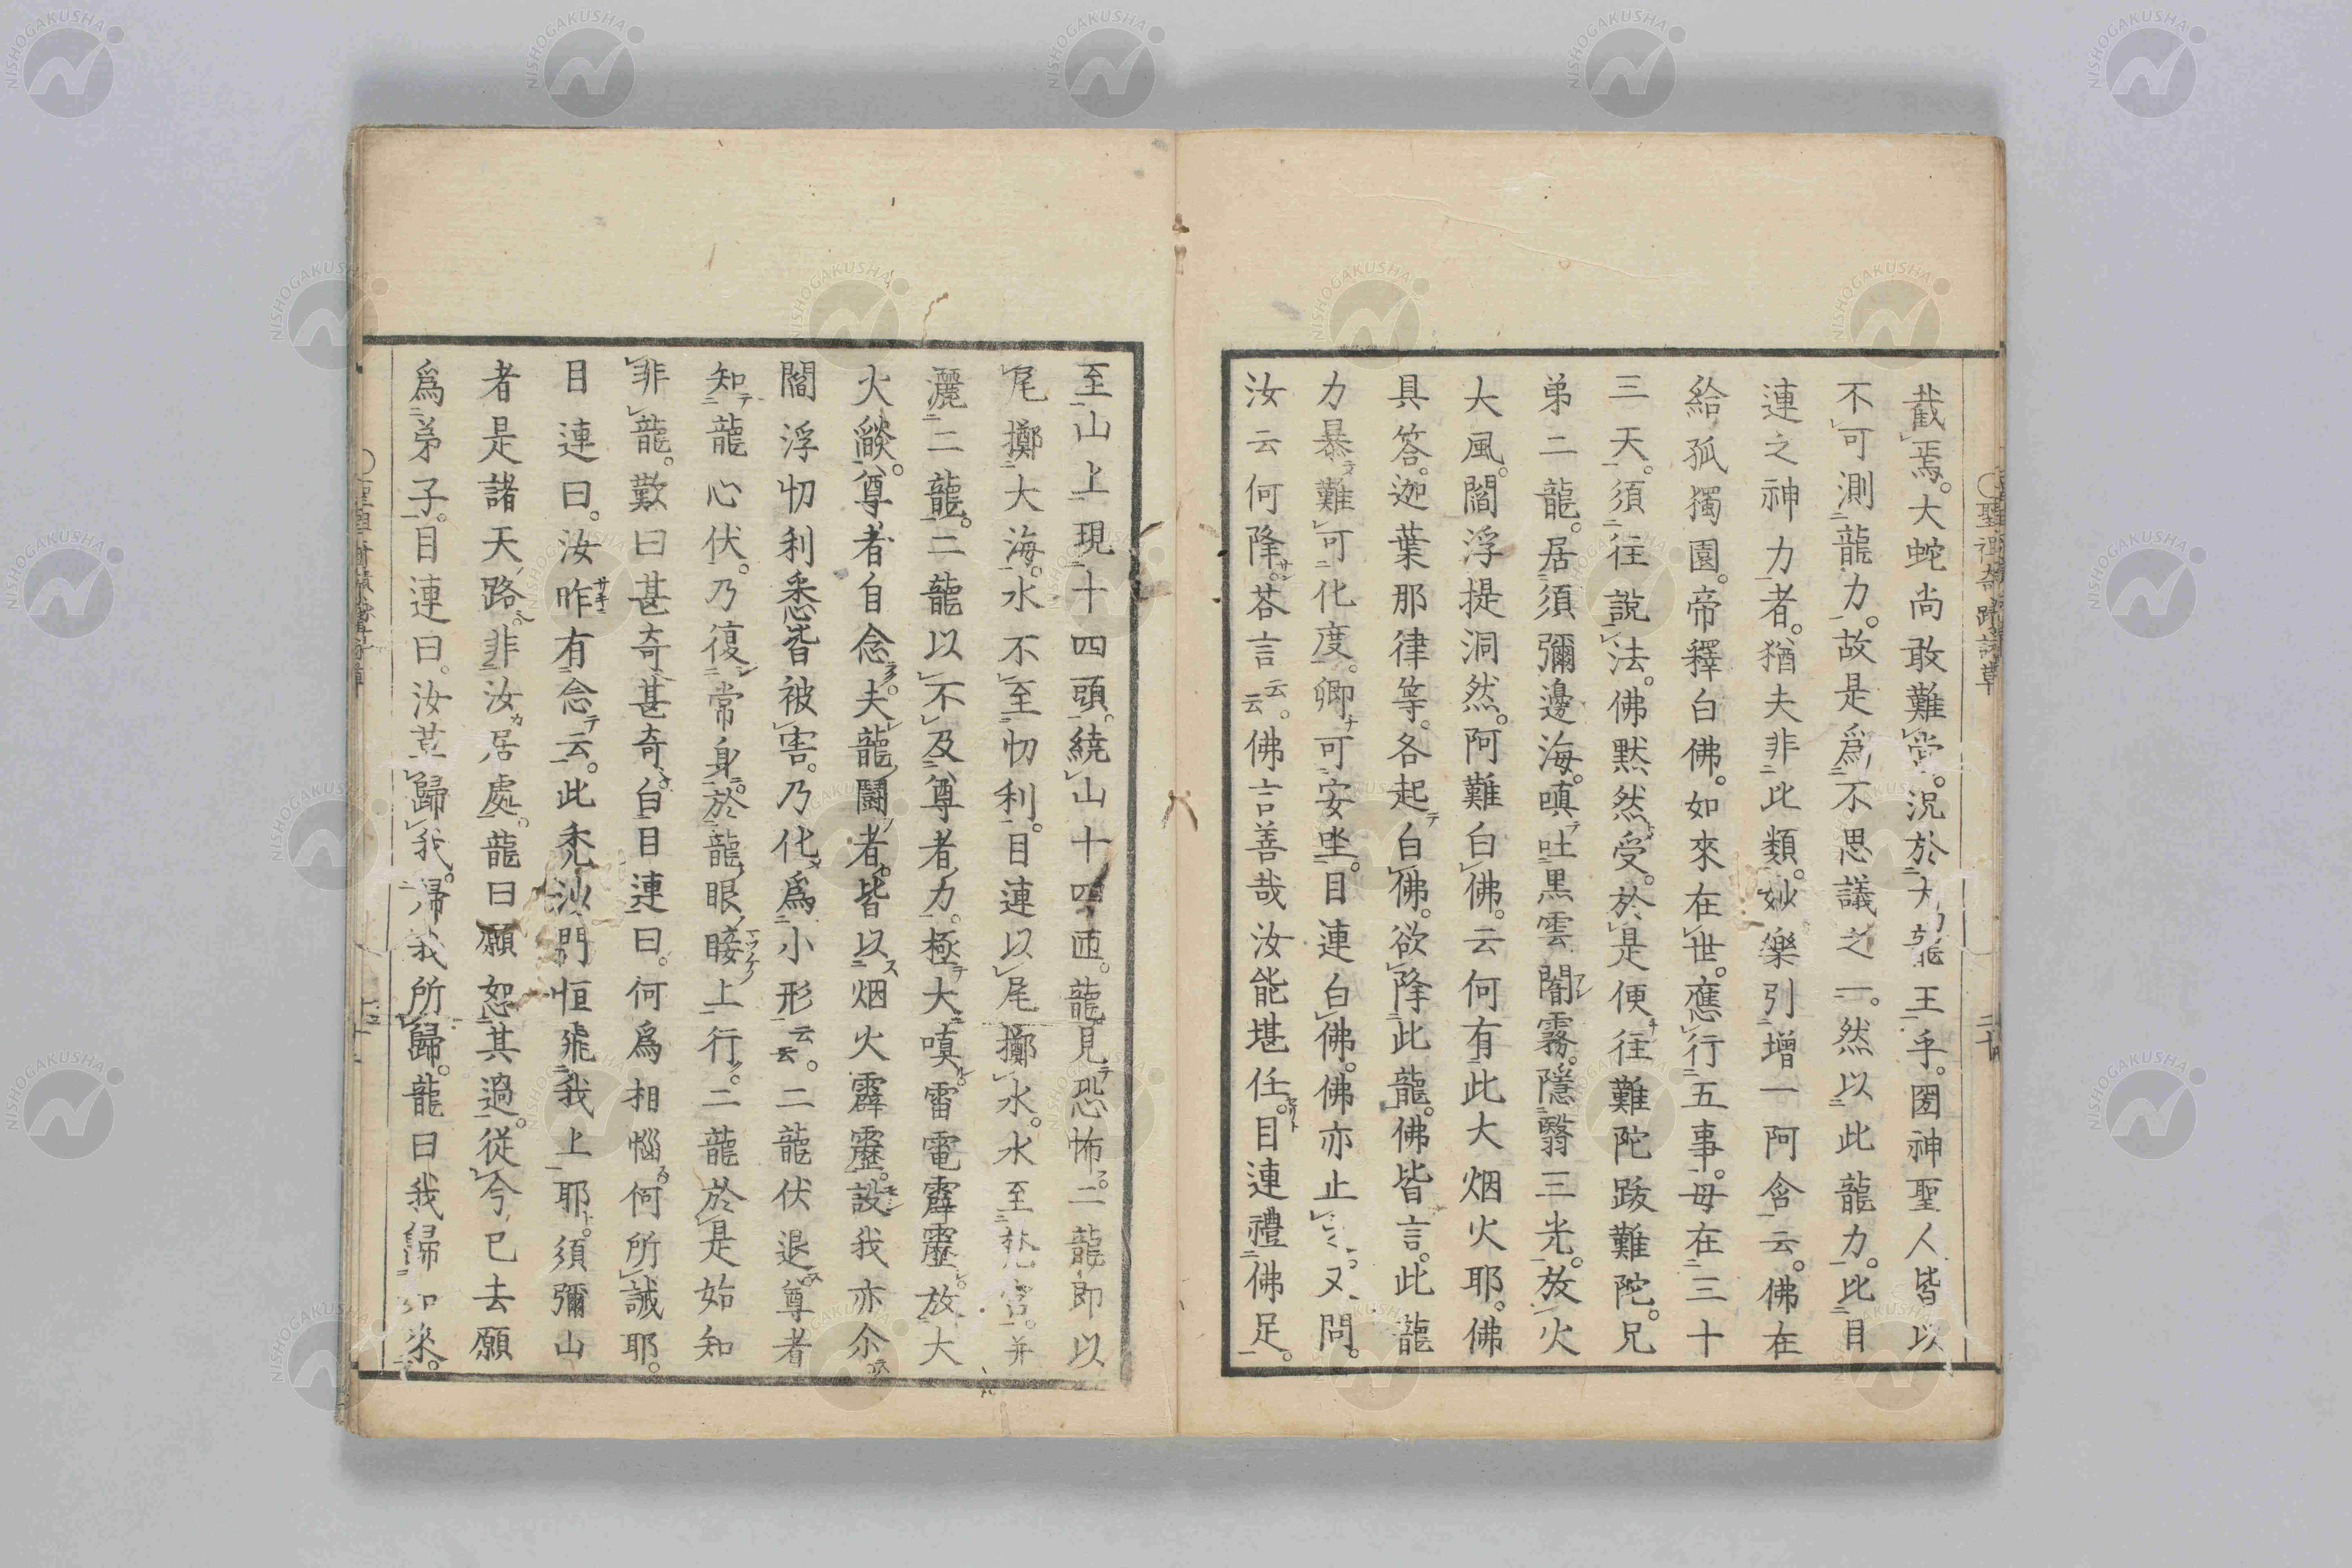 截焉。大蛇尚敢難當。況於大龍王乎。圀神聖人皆以
不可測龍力。故是爲不思議之一。然以此龍力。比目
連之神力者。猶夫非比類。妙樂引增一阿含云。佛在
給孤獨園。帝釋白佛。如來在世。應行五事。母在三十
三天。須往說法。佛默然受。於是便往難陀跋難陀。兄
弟二龍。居須彌邊海。嗔吐黒雲闇霧。隱翳三光。放火
大風。閻浮提洞然。阿難白佛。云何有此大烟火耶。佛
具答。迦葉那律等。各起白佛。欲降此龍。佛皆言。此龍
力暴難可化度。卿可安坐。目連白佛。佛亦止又問。
汝云何降。荅言云云。佛言善哉汝能堪任。目連禮佛足。
至山上現十四頭。繞山十四匝。龍見恐怖。二龍即以
尾擲大海。水不至忉利。目連以尾擲水。水至梵宮。并
灑二龍。二龍以不及尊者力。極大嗔雷電霹靂放大
火燄。尊者自念。夫龍鬪者皆以烟火霹靂。設我亦介
閻浮忉利悉皆被害。乃化爲小形云云。二龍伏退尊者
知龍心伏。乃復常身。於龍眼睫上行。二龍於是始知
非龍。歎曰甚奇甚奇。白目連曰。何爲相惱何所誡耶。
目連曰。汝昨有念云。此禿沙門恒飛我上耶。須彌山
者是諸天路。非汝居處。龍曰願恕其過。從今已去願
爲弟子。目連曰。汝莫歸我。歸我所歸。龍曰我歸如來。
○聖迹奇蹤詩草